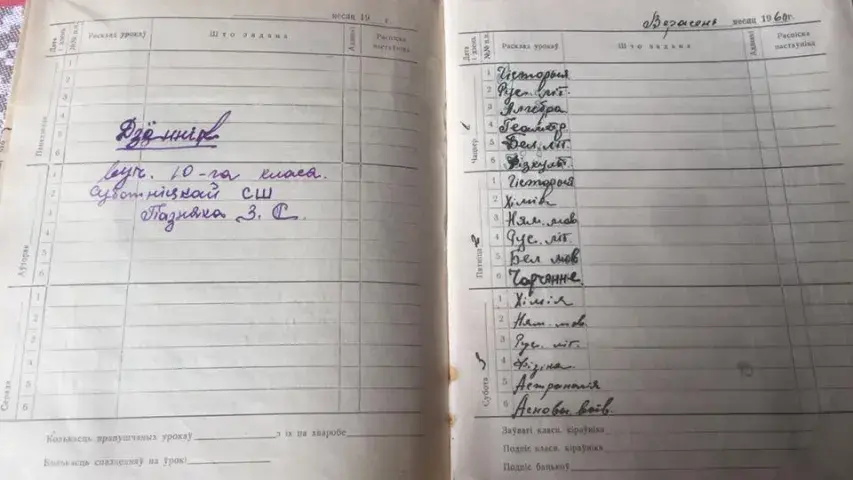 месяц 19 г.
Дата і дзень
№№ п.п.
Расклад урокаў
Што задана
Адзнакі
Распіска настаўніка
Панядзелак
1
2
3
4
5
6
Дзённік
вуч. 10-га класа.
Суботніцкай СШ
Пазняка З. С.
Аўторак
1
2
3
4
5
6
Серада
1
2
3
4
5
6
Колькасць прапушчаных урокаў
з іх па хваробе
Колькасць спазненняў на ўрокі
Верасень месяц 1960 г.
Дата і дзень
№№ п.п.
Расклад урокаў
Што задана
Адзнакі
Распіска настаўніка
Чацвер 1
1 Гісторыя
2 Рус. літ.
3 Алгебра
4 Геаметр.
5 Бел. літ.
6 Фізкульт.
Пятніца 2
1 Гісторыя
2 Хімія
3 Ням. мов.
4 Рус. літ.
5 Бел. мов
6 Чарчэнне.
Субота 3
1 Хімія
2 Ням. мов.
3 Рус. літ.
4 Фізіка
5 Астраномія
6 Асновы
Заўвагі класн. кіраўніка
Подпіс класн. кіраўніка
Подпіс бацькоў